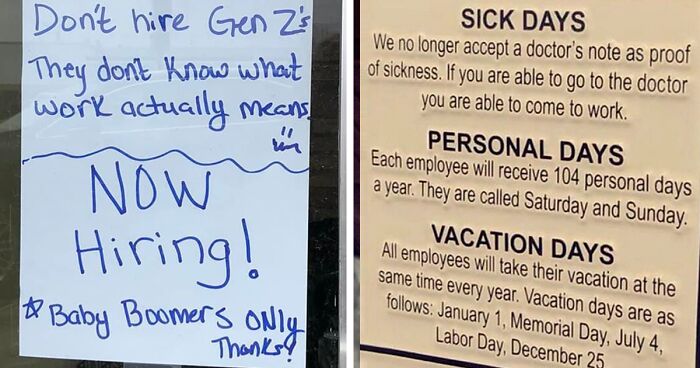 Don't hire Gen Z's
They don't know what
work actually means.
NOW
Hiring!
Baby Boomers ONly
Thanks!
SICK DAYS
We no longer accept a doctor's note as proof
of sickness. If you are able to go to the doctor
you are able to come to work.
PERSONAL DAYS
Each employee will receive 104 personal days
a year. They are called Saturday and Sunday.
VACATION DAYS
All employees will take their vacation at the
same time every year. Vacation days are as
follows: January 1, Memorial Day, July 4,
Labor Day, December 25